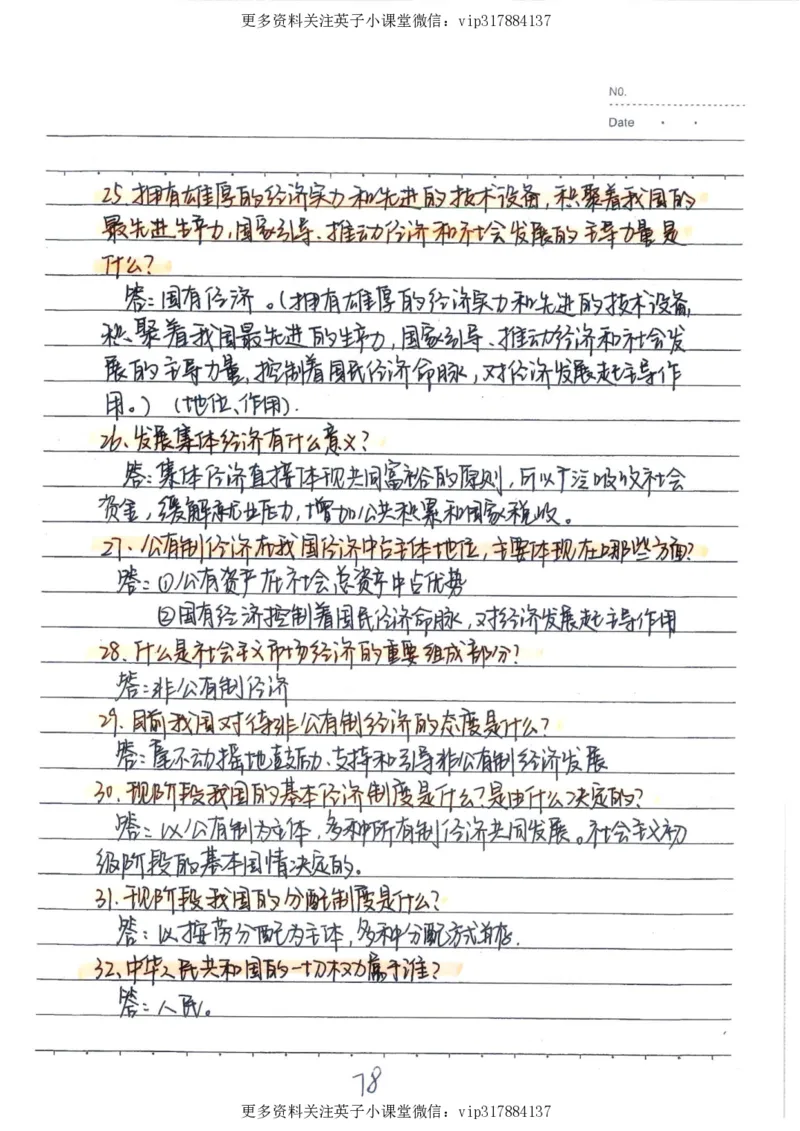 更多资料关注英子小课堂微信：vip317884137
NO.
Date
25.拥有雄厚的经济实力和先进的技术设备，积聚着我国的
最先进生产力，国家引导、推动经济和社会发展的主导力量是
什么？
答：国有经济。（拥有雄厚的经济实力和先进的技术设备，
积聚着我国最先进的生产力，国家引导、推动经济和社会发
展的主导力量，控制着国民经济命脉，对经济发展起主导作
用。）（地位、作用）.
26、发展集体经济有什么意义？
答：集体经济直接体现共同富裕的原则，可以广泛吸收社会
资金，缓解就业压力，增加公共积累和国家税收。
27、公有制经济在我国经济中占主体地位，主要体现在哪些方面？
答：①公有资产在社会总资产中占优势
②国有经济控制着国民经济命脉，对经济发展起主导作用
28、什么是社会主义市场经济的重要组成部分？
答：非公有制经济
29、目前我国对待非公有制经济的态度是什么？
答：毫不动摇地鼓励、支持和引导非公有制经济发展
30、现阶段我国的基本经济制度是什么？是由什么决定的？
答：以公有制为主体，多种所有制经济共同发展。社会主义初
级阶段的基本国情决定的。
31、现阶段我国的分配制度是什么？
答：以按劳分配为主体，多种分配方式并存.
32、中华人民共和国的一切权力属于谁？
答：人民。
78
更多资料关注英子小课堂微信：vip317884137